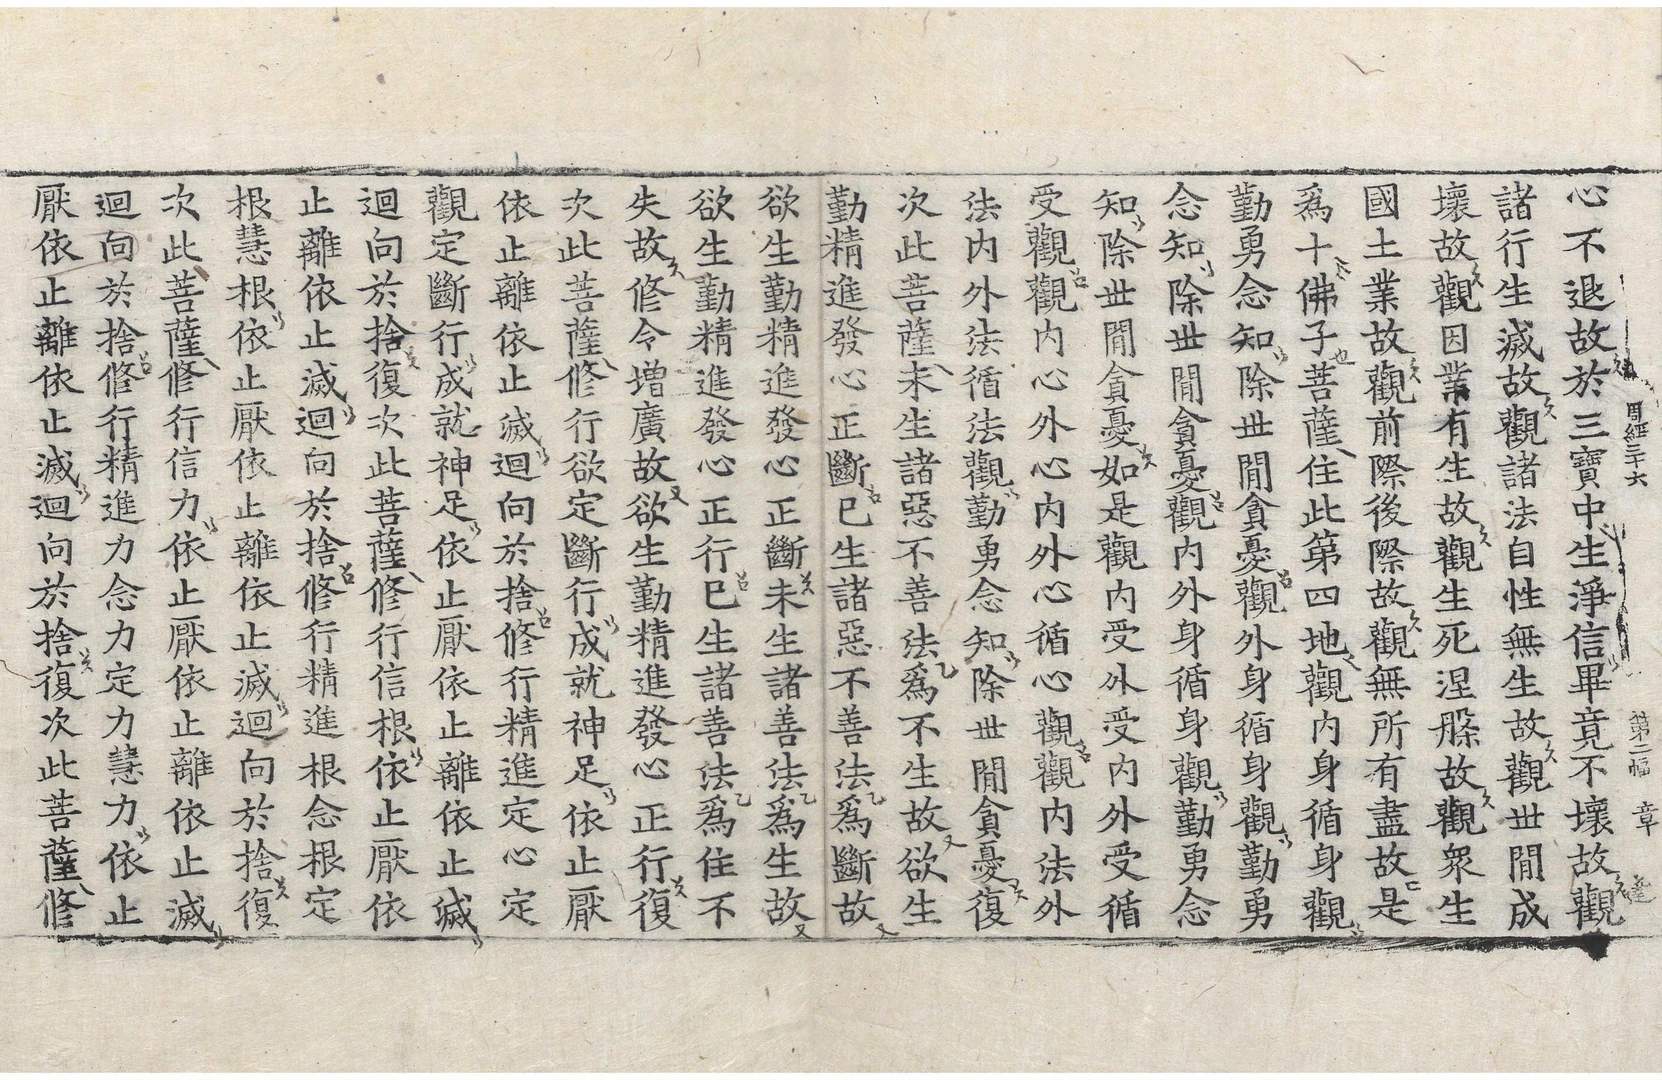 周經三十六 第二幅 章
心不退故於三寶中生淨信畢竟不壞故觀
諸行生滅故觀諸法自性無生故觀世間成
壞故觀因業有生故觀生死涅槃故觀衆生
國土業故觀前際後際故觀無所有盡故是
爲十佛子菩薩住此第四地觀內身循身觀
勤勇念知除世閒貪憂觀外身循身觀勤勇
念知除世閒貪憂觀內外身循身觀勤勇念
知除世閒貪憂如是觀內受外受內外受循
受觀觀內心外心內外心循心觀觀內法外
法內外法循法觀勤勇念知除世閒貪憂復
次此菩薩未生諸惡不善法爲不生故欲生
勤精進發心正斷已生諸惡不善法爲斷故
欲生勤精進發心正斷未生諸善法爲生故
欲生勤精進發心正行已生諸善法爲住不
失故修令增廣故欲生勤精進發心正行復
次此菩薩修行欲定斷行成就神足依止厭
依止離依止滅迴向於捨修行精進定心定
觀定斷行成就神足依止厭依止離依止滅
迴向於捨復次此菩薩修行信根依止厭依
止離依止滅迴向於捨修行精進根念根定
根慧根依止厭依止離依止滅迴向於捨復
次此菩薩修行信力依止厭依止離依止滅
迴向於捨修行精進力念力定力慧力依止
厭依止離依止滅迴向於捨復次此菩薩修